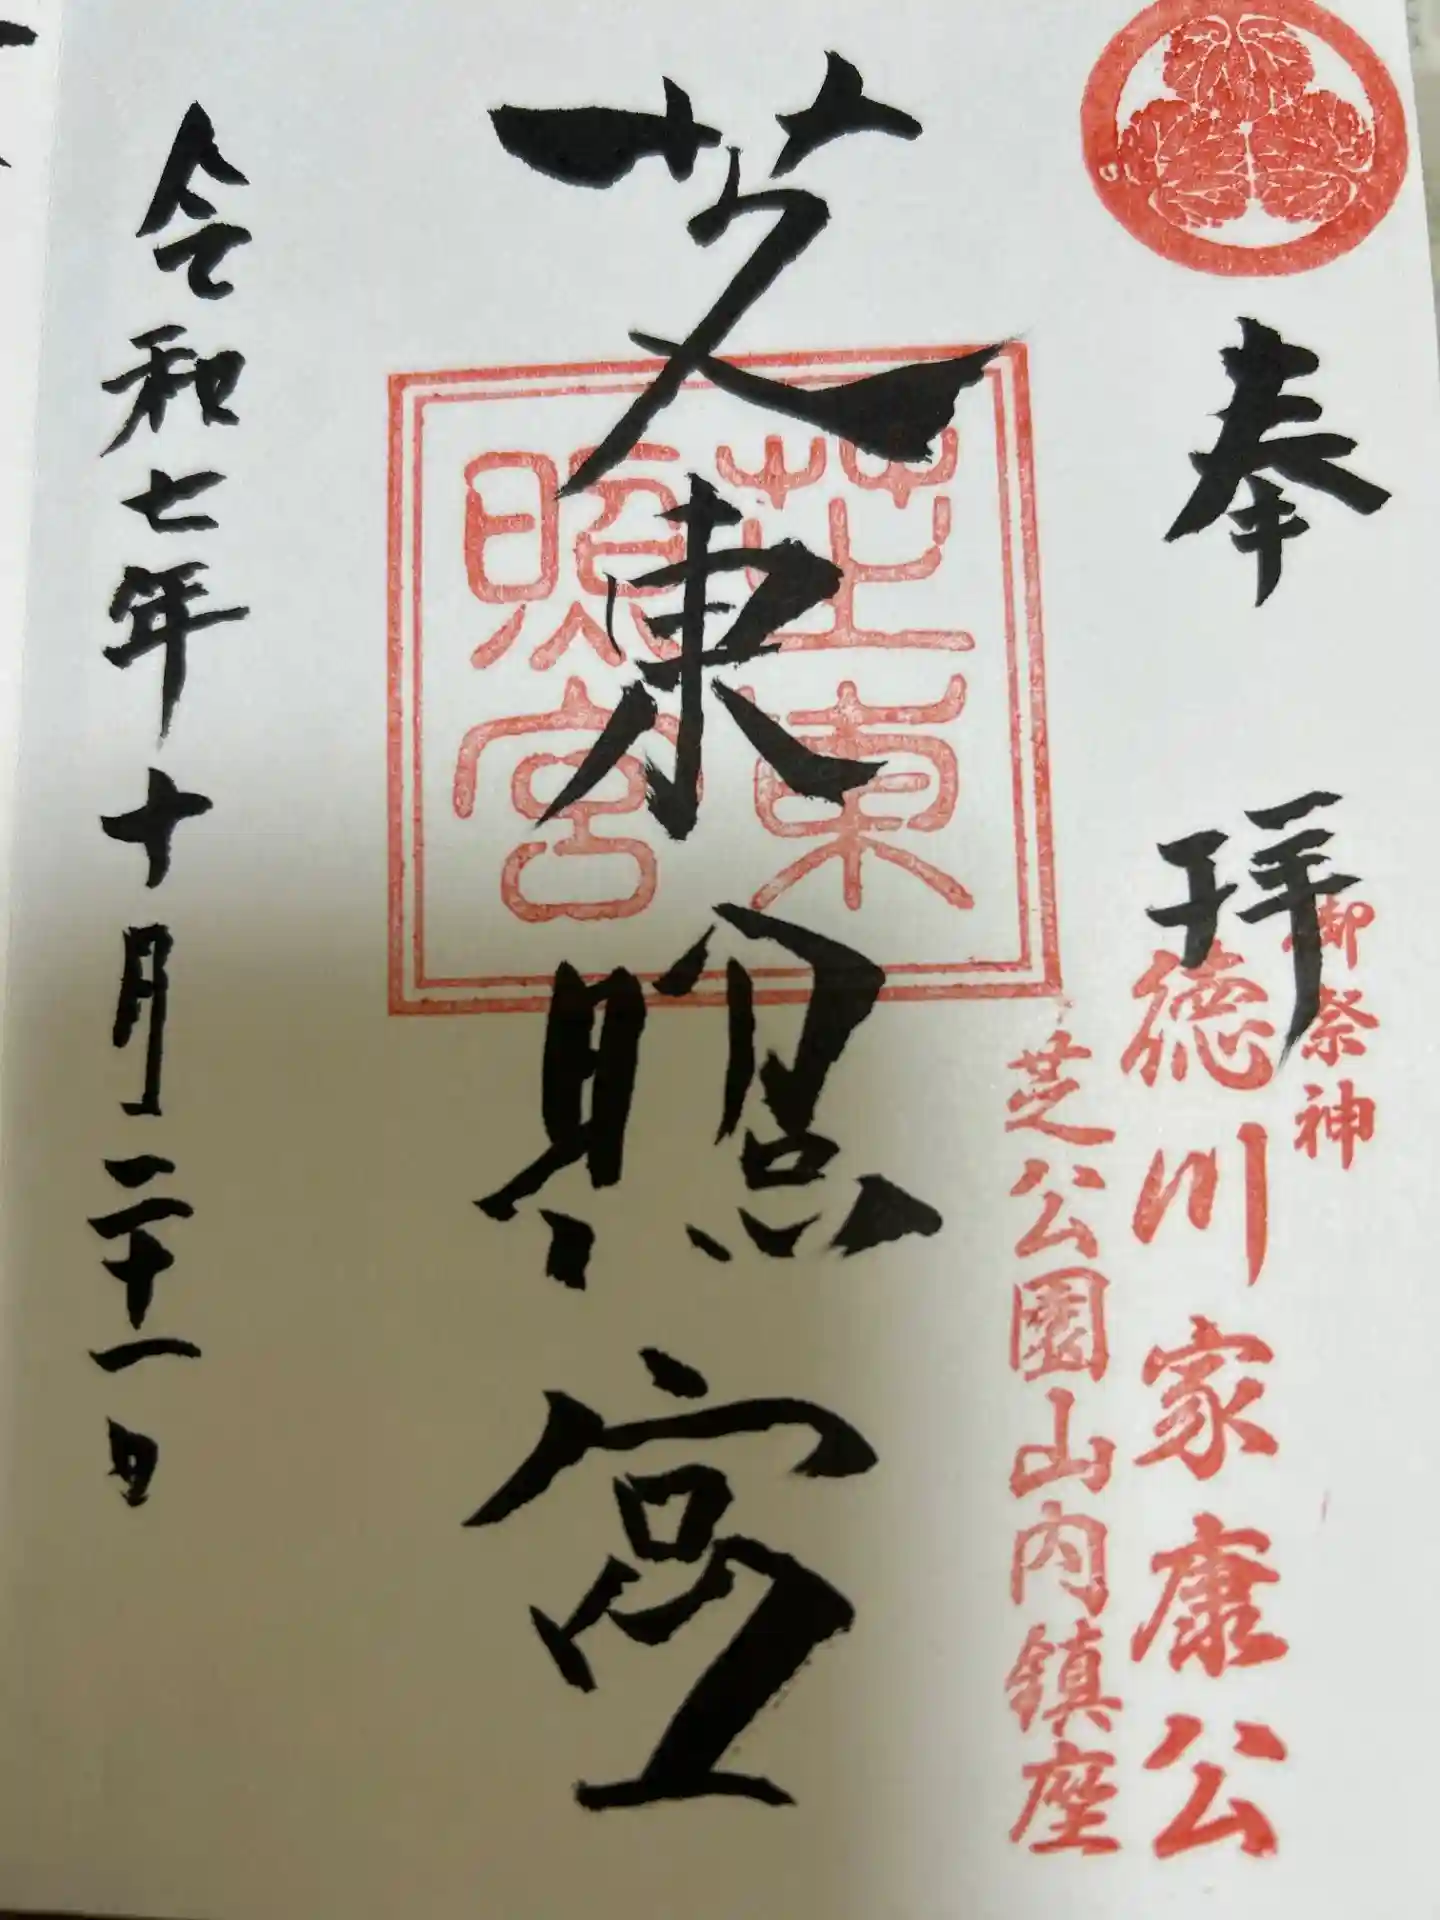 奉拝
御祭神
徳川家康公
芝公園山内鎮座
芝東照宮
芝東
照宮
令和七年十月二十一日